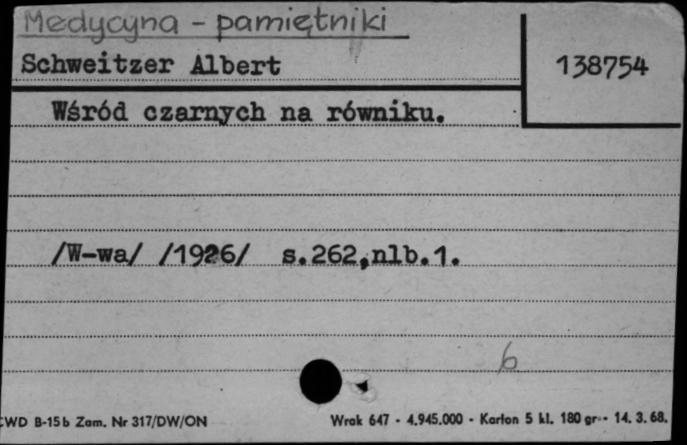 Medycyna - pamiętniki
Schweitzer Albert
138754
Wśród czarnych na równiku.
/W-wa/ /1926/ s.262,nlb.1.
6
CWD B-15b Zam. Nr 317/DW/ON
Wrak 647 - 4.945.000 - Karton 5 kl. 180 gr - 14. 3. 68.